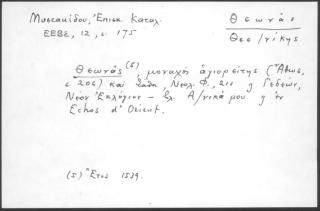 Μυστακίδου, Ἐπισκ. Καταλ.
ΕΕΒΣ, 12, σ. 175
Θεωνᾶς
Θεσ/νίκης
Θεωνᾶς (5), μοναχὸς ἁγιορείτης (Ἄθως,
σ. 206) καὶ Σάθα, Νεοελ. Φ., 211 ἢ Γεδεών,
Νέον Ἐκλόγιον - βλ. Α/νικά μου ἢ ἐν
Echos d' Orient.
(5) Ἔτος 1539.